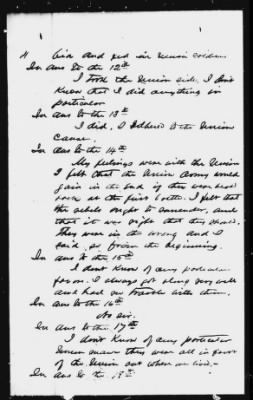 4 aid and fed our Union soldiers
In ans to the 12th
I took the Union side. I don't
know that I did anything in
particular
In ans to the 13th
I did, I adhered to the Union
Cause.
In ans to the 14th
My feelings were with the Union
I felt that the Union Army would
gain in the end if they were beat
back at the first battle. I felt that
the rebels ought to surrender, and
that it was right that they should.
They were in the wrong and I
said so from the beginning.
In ans to the 15th
I don't know of any particular
favor. I always got along very well
and had no trouble with them.
In ans to the 16th
No sir.
In ans to the 17th
I don't know of any particular
Union man they were all in favor
of the Union out where we lived.
In ans to the 18th